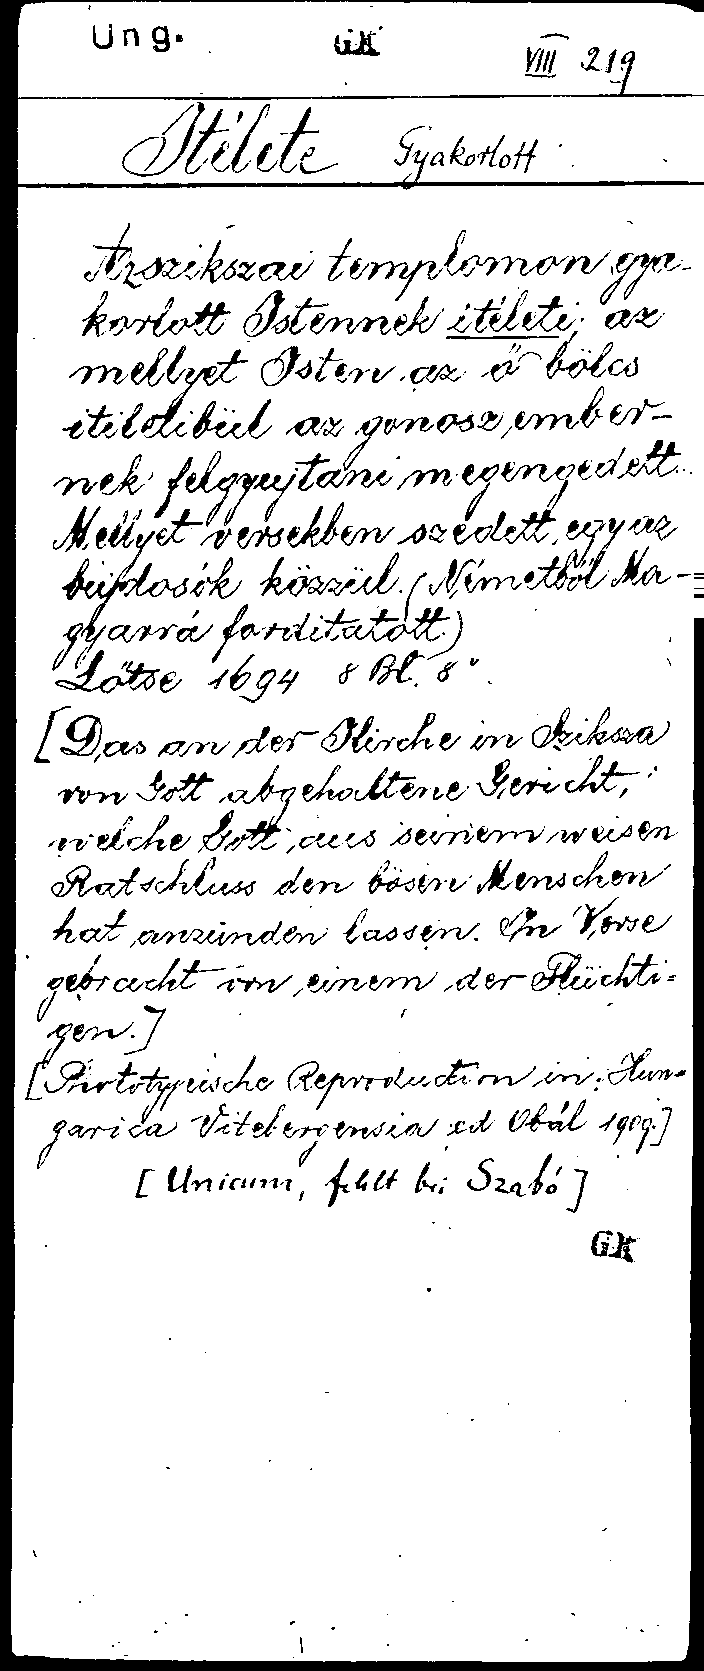 Ung. GK VIII 219
Itélete Gyakorlott
Az szikszai templomon gya-
korlott Istennek itéleti; az
mellyet Isten az ő bölcs
itiletibül az gonosz ember-
nek felgyujtani megengedett.
Mellyet versekben szedett egy az
bujdosók közzül. (Németből Ma-
gyarrá forditatott.)
Lőtse 1694 8 Bl. 8°.
[Das an der Kirche in Sziksza
von Gott abgehaltene Gericht,
welche Gott aus seinem weisen
Ratschluss den bösen Menschen
hat anzünden lassen. In Verse
gebracht von einem der Flüchti-
gen.]
[Phototypische Reproduction in: Hun-
garica Vitebergensia ed Obál 1909.]
[Unicum, fehlt bei Szabó]
GK